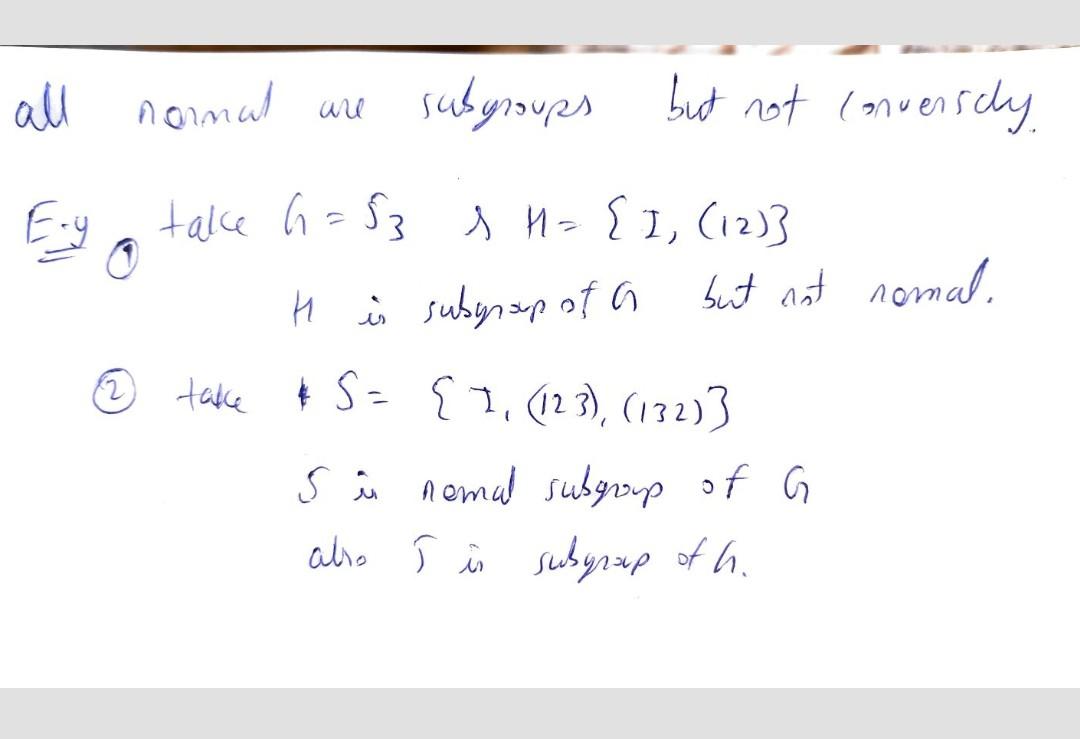 all normal are subgroups but not conversely.
E.g ① take G = S3 & H = { I, (12)}
H is subgroup of G but not normal.
② take S = { I, (123), (132)}
S is normal subgroup of G
also S is subgroup of G.